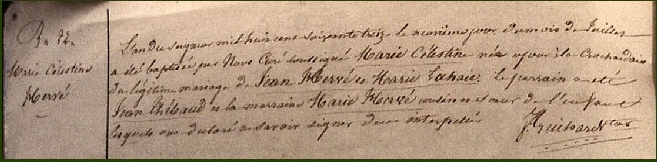 B. 72.
Marie Célestine
Hervé
L'an du seigneur mil huit cent soixante treize le neuvième jour du mois de Juillet
a été baptisée par Nous Curé soussigné Marie Célestine née ce jour à la
du légitime mariage de Jean Hervé et Marie Lahaie. Le parrain a été
Jean Thébaud et la marraine Marie Hervé cousin et sœur de l'enfant
lesquels ont déclaré ne savoir signer de ce interpellés